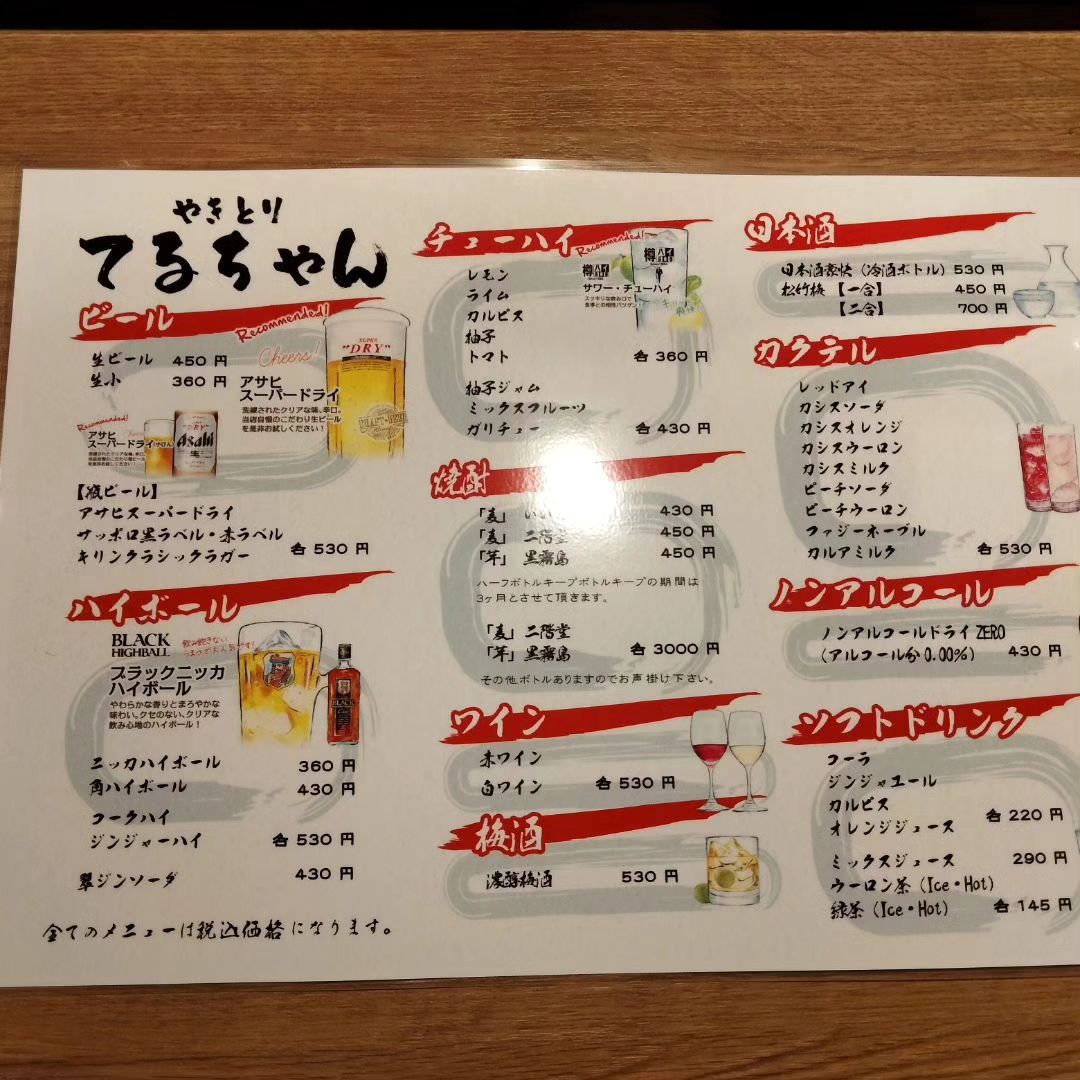 やきとり
てるちゃん
ビール
Recommended!
Cheers!
生ビール 450 円
生小 360 円
アサヒ
スーパードライ
洗練されたクリアな味、辛口。
当店自慢のこだわり生ビール
を是非お試しください!
SUPER
"DRY"
DRAFT BEER
Recommended!
アサヒ
スーパードライ
"DRY"
Asahi
生
【瓶ビール】
アサヒスーパードライ
サッポロ黒ラベル・赤ラベル
キリンクラシックラガー 各 530 円
ハイボール
BLACK
HIGHBALL
飲み飽きない
うまさで大人気です!
ブラックニッカ
ハイボール
やわらかな香りとまろやかな
味わい。クセのない、クリアな
飲み心地のハイボール!
BLACK
ニッカハイボール 360 円
角ハイボール 430 円
コークハイ
ジンジャーハイ 各 530 円
翠ジンソーダ 430 円
全てのメニューは税込価格になります。
チューハイ
Recommended!
レモン
ライム
カルピス
柚子
トマト 各 360 円
樽ハイ
サワー・チューハイ
スッキリな飲み口で
食事との相性バツグン!
柚子ジャム
ミックスフルーツ
ガリチュー 各 430 円
焼酎
「麦」 430 円
「麦」 二階堂 450 円
「芋」 黒霧島 450 円
ハーフボトルキープボトルキープの期間は
3ヶ月とさせて頂きます。
「麦」 二階堂
「芋」 黒霧島 各 3000 円
その他ボトルありますのでお声掛け下さい。
ワイン
赤ワイン
白ワイン 各 530 円
梅酒
濃醇梅酒 530 円
日本酒
日本酒豪快 (冷酒ボトル) 530 円
松竹梅 【一合】 450 円
【二合】 700 円
カクテル
レッドアイ
カシスソーダ
カシスオレンジ
カシスウーロン
カシスミルク
ピーチソーダ
ピーチウーロン
ファジーネーブル
カルアミルク 各 530 円
ノンアルコール
ノンアルコールドライ ZERO
(アルコール分 0.00%) 430 円
ソフトドリンク
コーラ
ジンジャエール
カルピス
オレンジジュース 各 220 円
ミックスジュース 290 円
ウーロン茶 (Ice・Hot)
緑茶 (Ice・Hot) 各 145 円